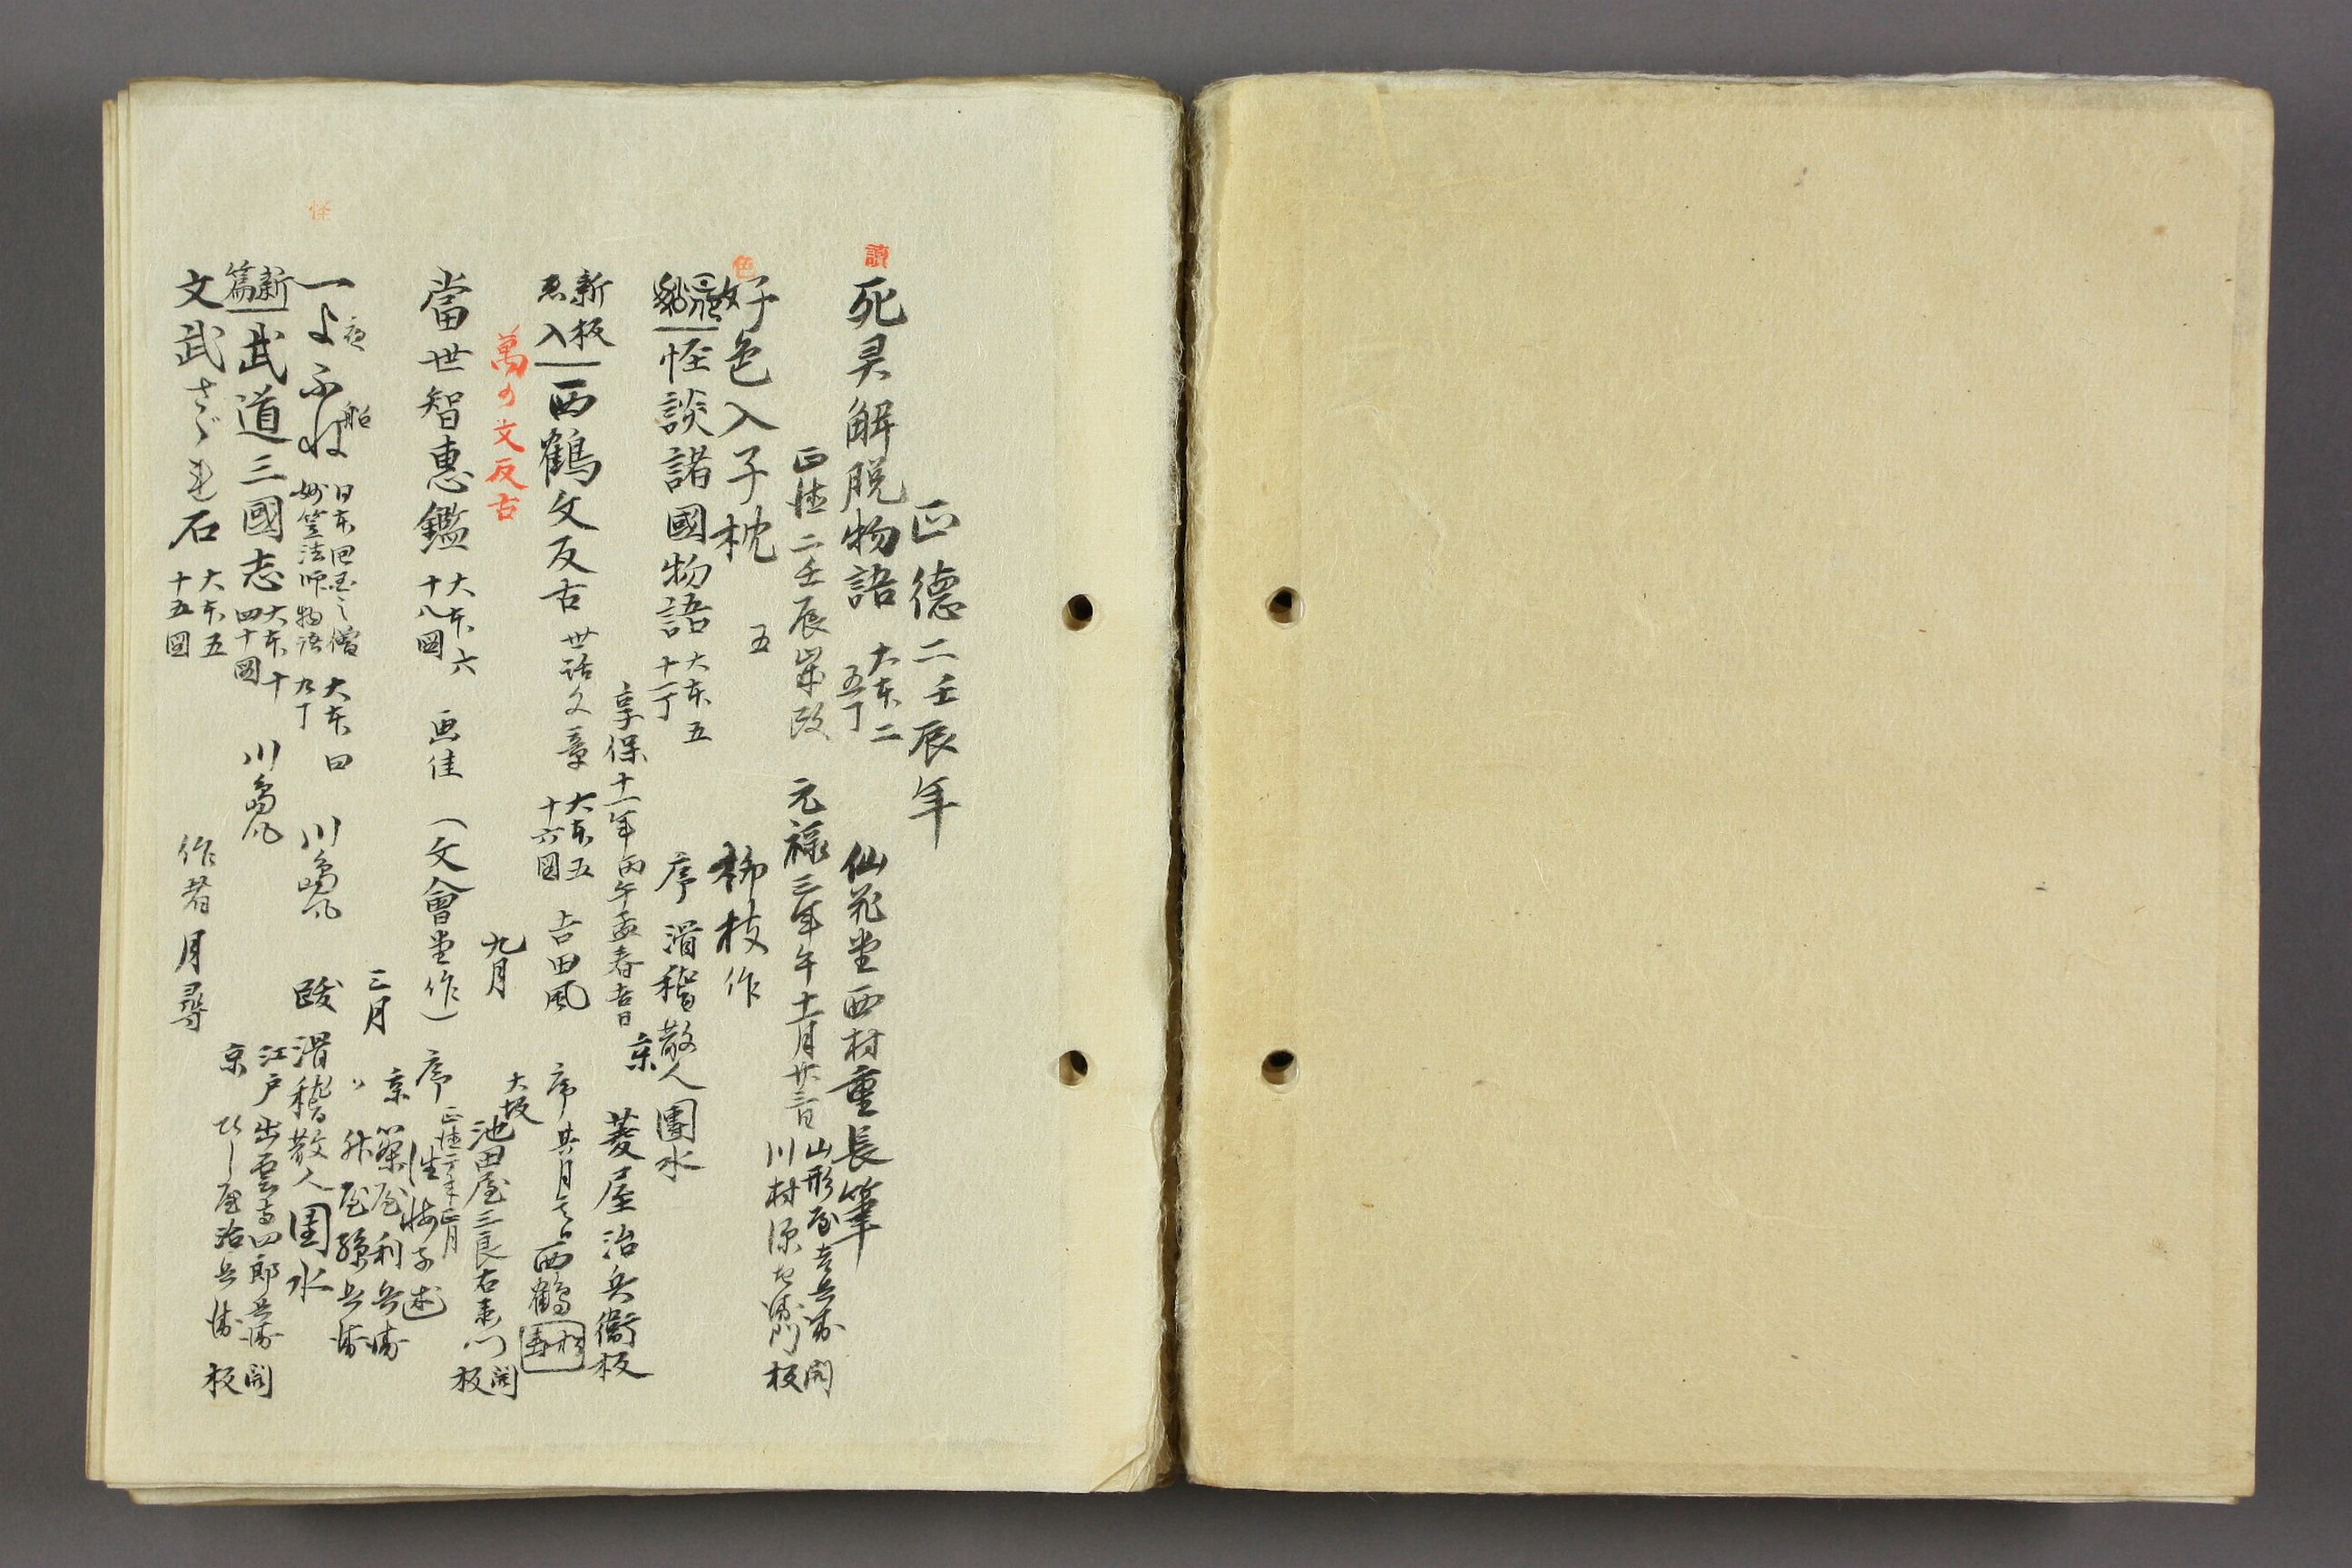 正德二壬辰年
讀
死灵解脱物語 大本二 五丁 仙花堂西村重長筆
正徳二壬辰歳改 元禄三年午十一月廿三日 山形屋吉兵衛 川村源左衛門 開板
色
好色入子枕 五 柳枝作
怪談諸國物語 大本五 十一丁 序 滑稽散人團水
享保十一年丙午孟春吉日 京 菱屋治兵衛板
新板 入 西鶴文反古 世話文章 大本五 十六圖 吉田風 序 其月 西鶴
萬の文反古 九月 大坂 池田屋三良右衛門 開板
當世智惠鑑 大本六 十八圖 画佳 (文會堂作) 序 正徳二年正月 述
三月 京 屋利兵衛
〃 升屋孫兵衛
怪
一よふね 夜 船 日本回国之僧 妙笠法師物語 大本四 九丁 川嶋氏 跋 滑稽散人團水
新篇 武道三國志 大本十 四十圖 川嶋氏 江戸出雲寺四郎兵衛 開板
京 ひし屋治兵衛
文武さゞれ石 大本五 十五圖 作者 月尋